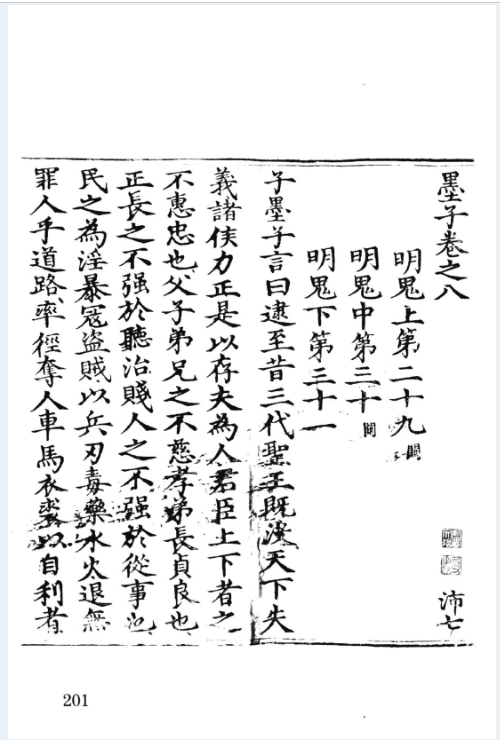 墨子卷之八 沛七
明鬼上第二十九 闕
明鬼中第三十 闕
明鬼下第三十一
子墨子言曰逮至昔三代聖王既沒天下失
義諸侯力正是以存夫為人君臣上下者之
不惠忠也父子弟兄之不慈孝弟長貞良也
正長之不强於聽治賤人之不强於從事也
民之為淫暴寇盜賊以兵刃毒藥水火退無
罪人乎道路率徑奪人車馬衣裘以自利者
201